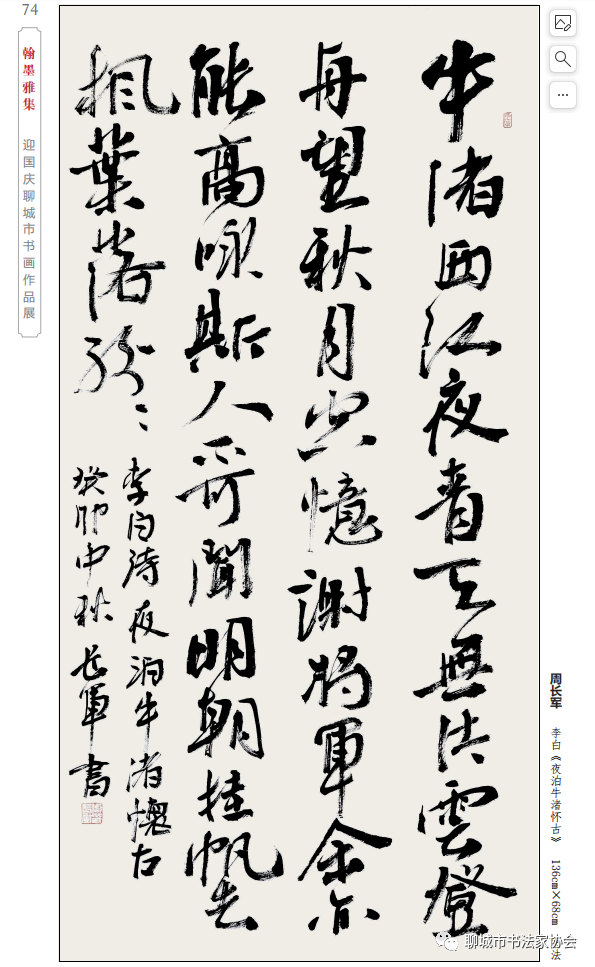 74
翰墨雅集
迎国庆聊城市书画作品展
牛渚西江夜青天無片雲登
舟望秋月空憶謝將軍余亦
能高詠斯人不可聞明朝挂帆去
楓葉落紛〻
李白詩夜泊牛渚懷古
癸卯中秋長軍書
周长军 李白《夜泊牛渚怀古》 136cm×68cm 法
聊城市书法家协会